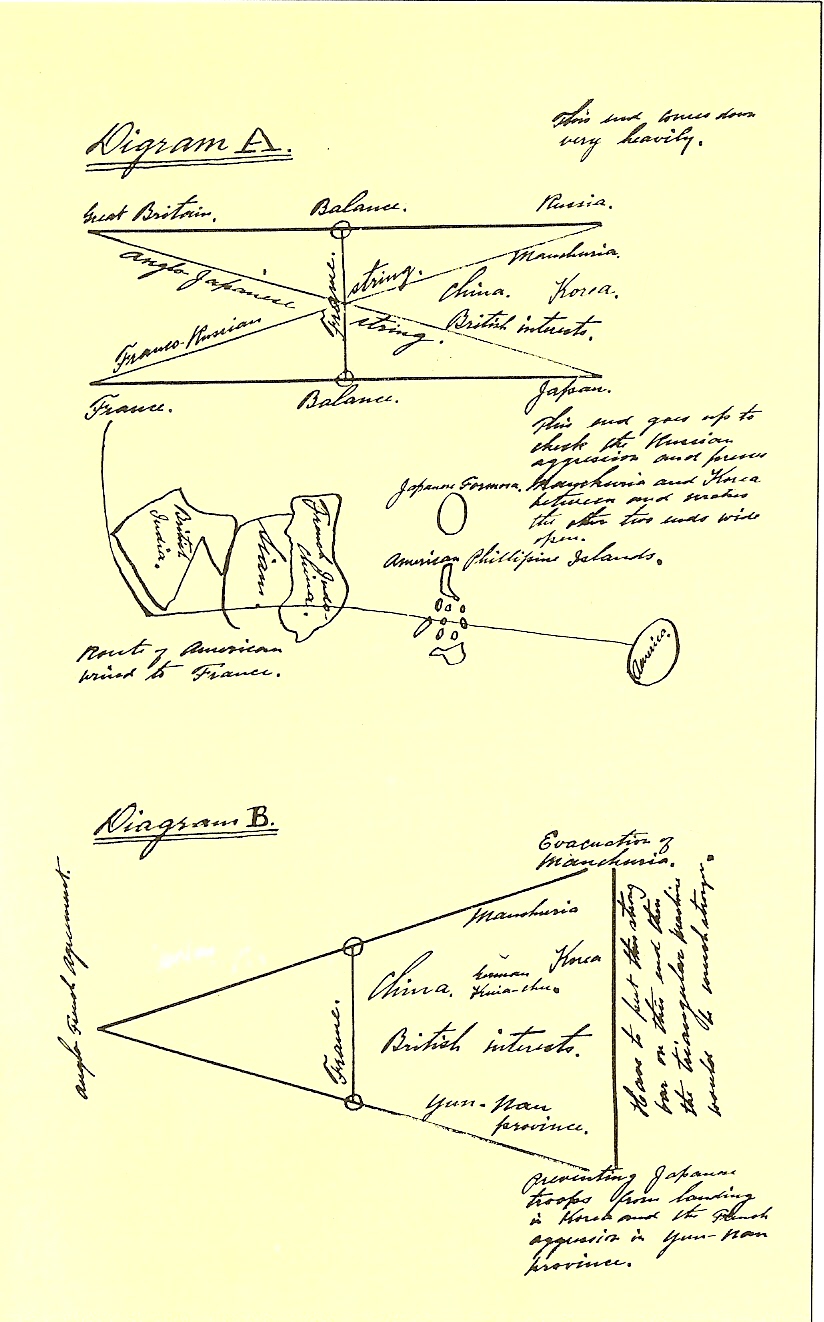 Digram A.
This end comes down
very heavily.
Great Britain.
Balance.
Russia.
Anglo Japanese
string.
Manchuria.
France.
China.
Korea.
Franco-Russian
string.
British interests.
France.
Balance.
Japan.
This end goes up to
check the Russian
aggression and presses
Manchuria and Korea
between and makes
the other two ends wide
open.
Japanese Formosa.
British
India.
Siam.
French Indo-
China.
American Phillipine Islands.
America.
Route of American
wind to France.
Diagram B.
Anglo French Agreement.
Evacuation of
Manchuria.
Manchuria
China.
German
Kiao-chu.
Korea
France.
British interests.
Yun-Nan
province.
Have to put this strong
bar on this end then
the triangular machine
would be much stronger.
Preventing Japanese
troops from landing
in Korea and the French
aggression in Yun-Nan
province.